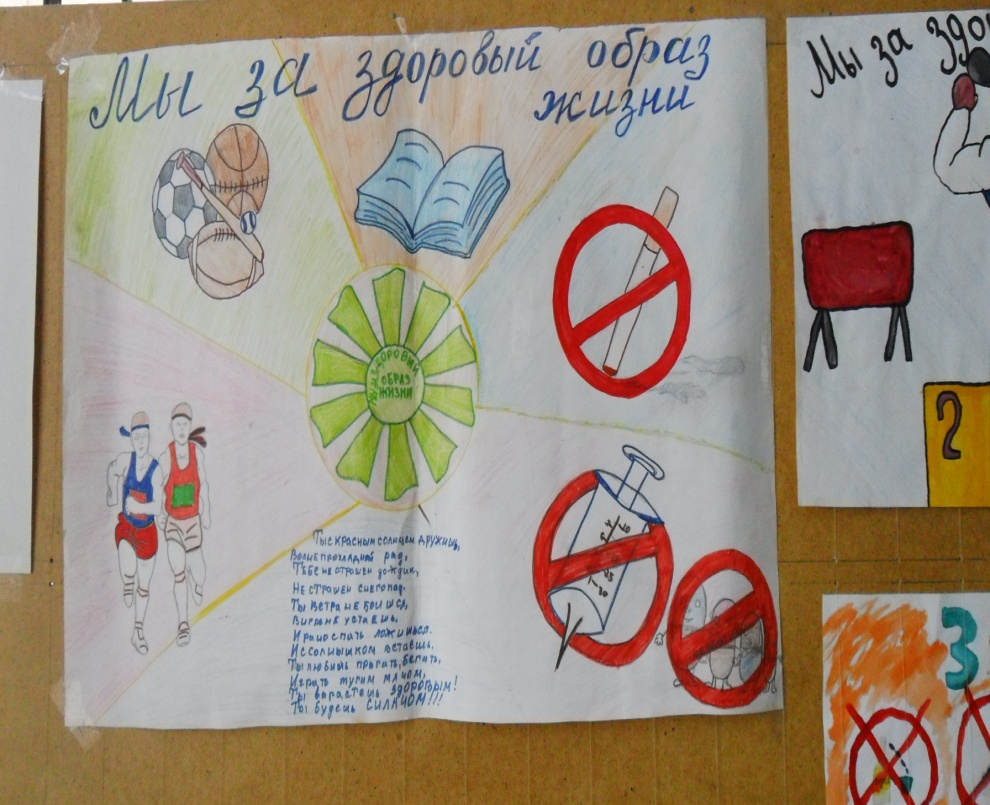 Мы за здоровый образ
жизни
ОБРАЗ
ЖИЗНИ
Ты с красным солнцем дружишь,
Волне прохладной рад,
Тебе не страшен дождик,
Не страшен снегопад.
Ты ветра не боишься,
В игре не устаешь,
И рано спать ложишься.
И с солнышком встаешь.
Ты любишь прыгать, бегать,
Играть тугим мячом,
Ты вырастешь здоровым!
Ты будешь СИЛАЧОМ!!!
Мы за здо
2
З